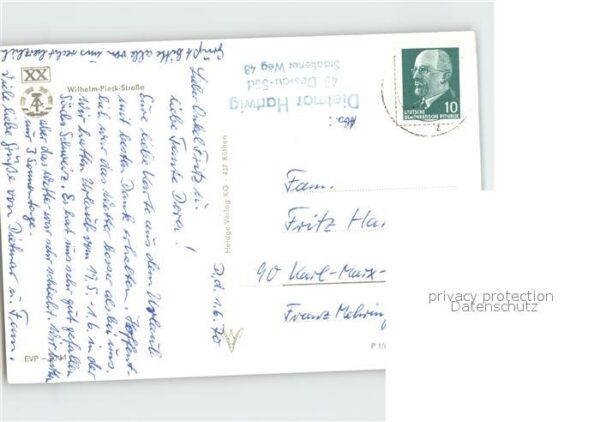 XX
Wilhelm-Pieck-Straße
D.d. 1.6.70
Lieber Onkel Fritz u.
liebe Tante Dora!
Eure liebe Karte aus dem Urlaub
mit besten Dank erhalten. Hoffent-
lich war das Wetter besser als bei uns.
Wir hatten Urlaub vom 17.5. - 1.6. in der
Sächs. Schweiz. Es hat uns sehr gut gefallen
aber das Wetter war sehr schlecht. Wir hatten
nur 3 Sonnentage.
Viele liebe Grüße von Dietmar u. Fam.
Grüßt bitte alle von uns recht herzlich
EVP
Heldge Verlag KG · 437 Köthen
Abs.:
Dietmar Hartwig
45 Dessau-Süd
Staakener Weg 43
10
DEUTSCHE
DEMOKRATISCHE REPUBLIK
Fam.
Fritz Har
90 Karl-Marx-
Franz Mehring
privacy protection
Datenschutz